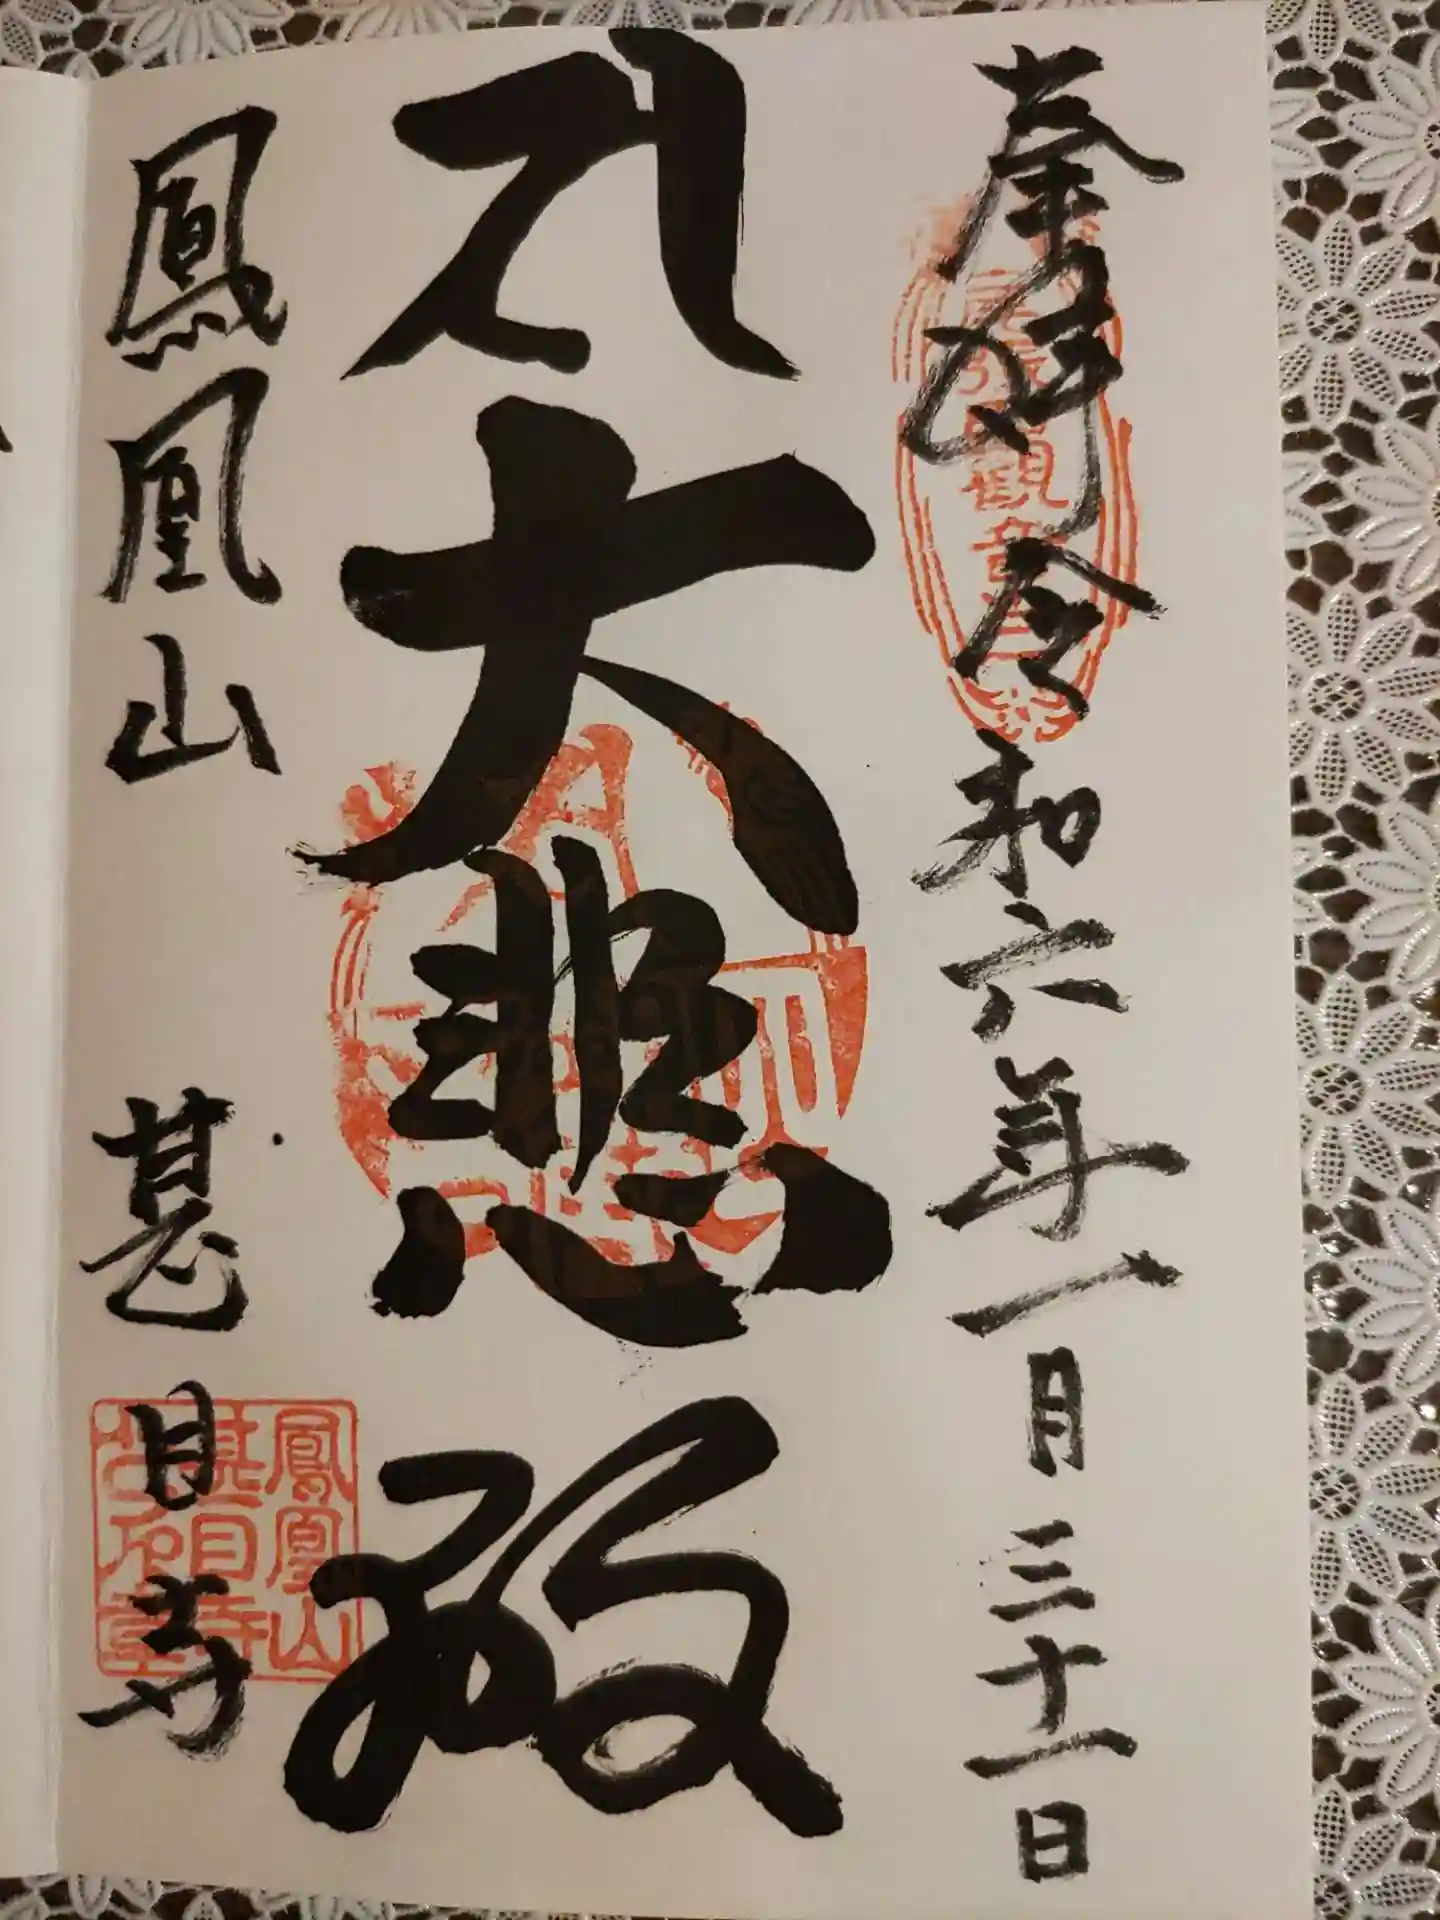 奉拝 令和六年一月三十一日
大悲殿
鳳凰山 甚目寺
観音
鳳凰山
甚目寺